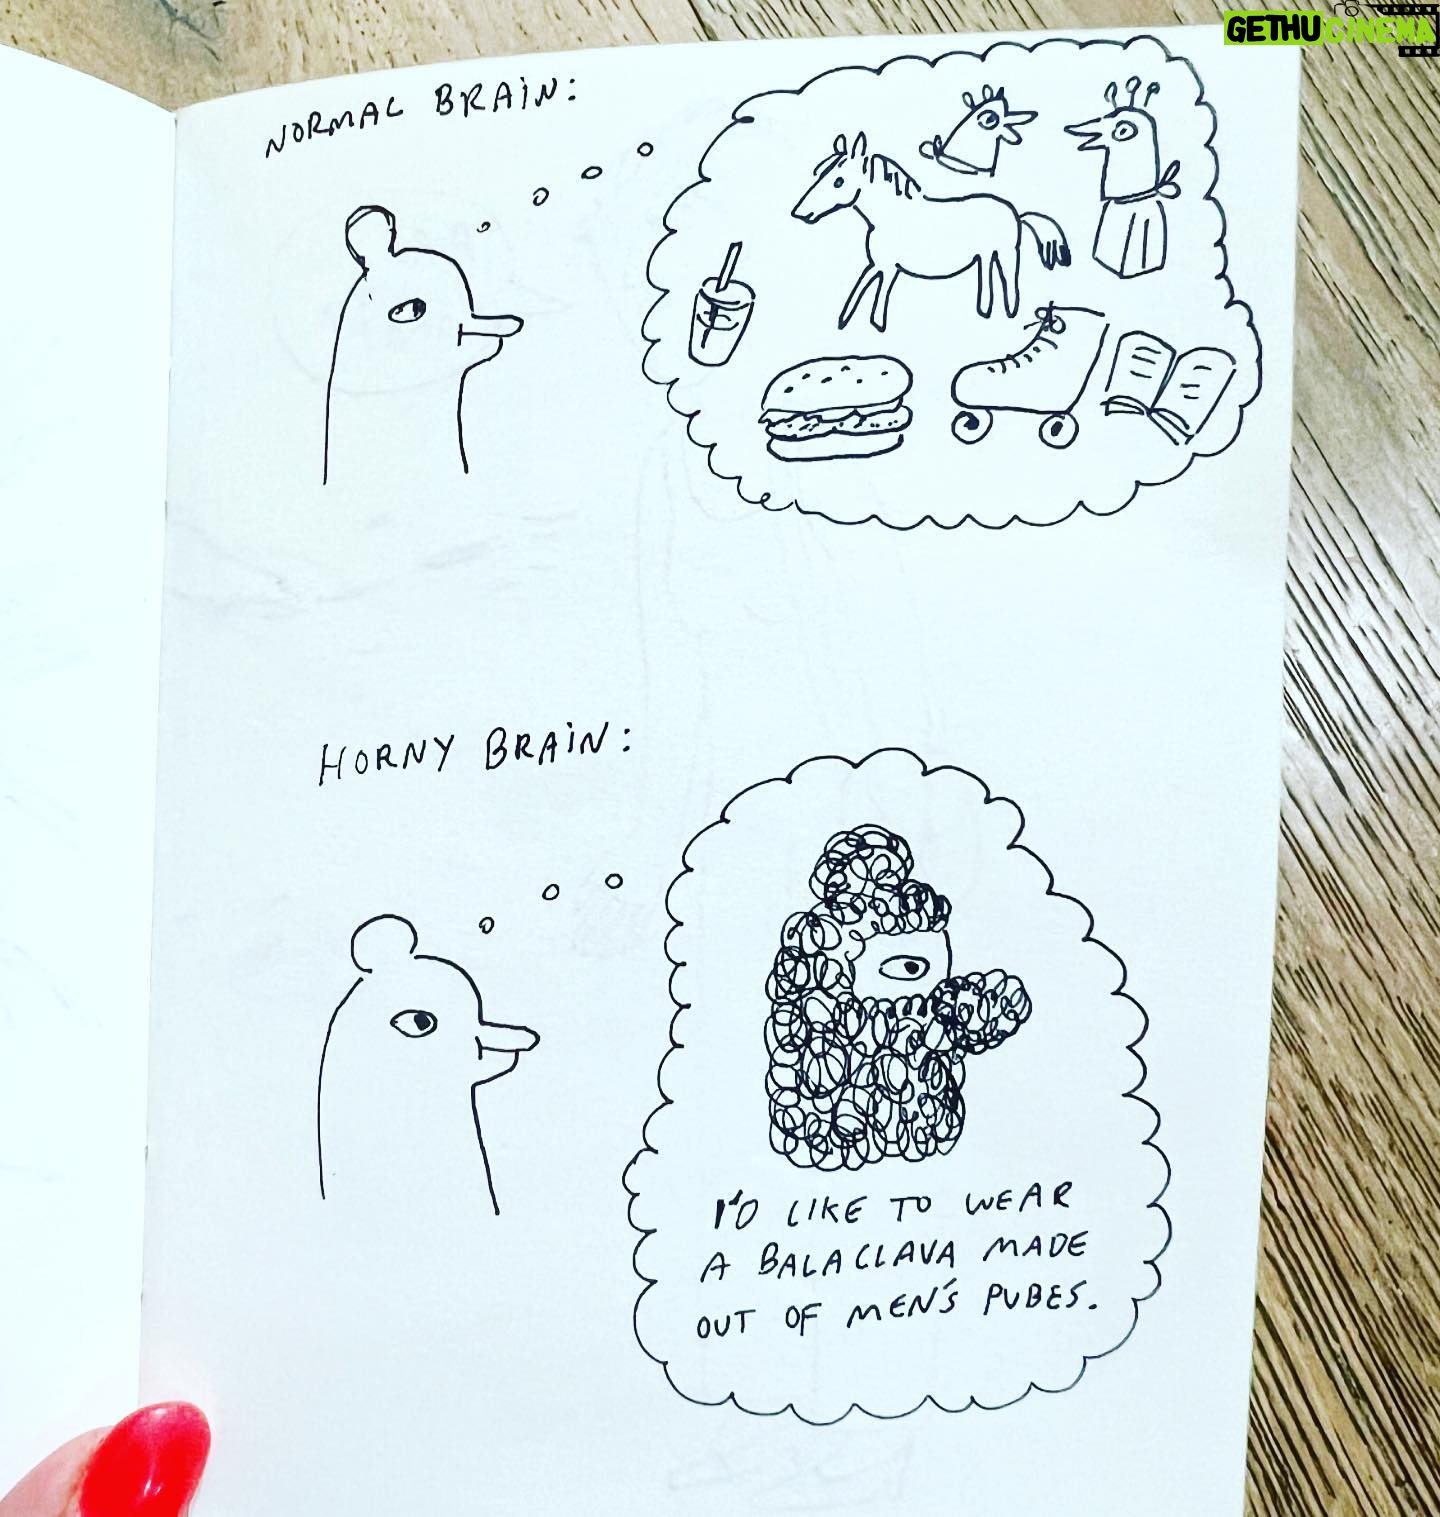 GETHUCINEMA
NORMAL BRAIN:
HORNY BRAIN:
I'D LIKE TO WEAR
A BALACLAVA MADE
OUT OF MEN'S PUBES.